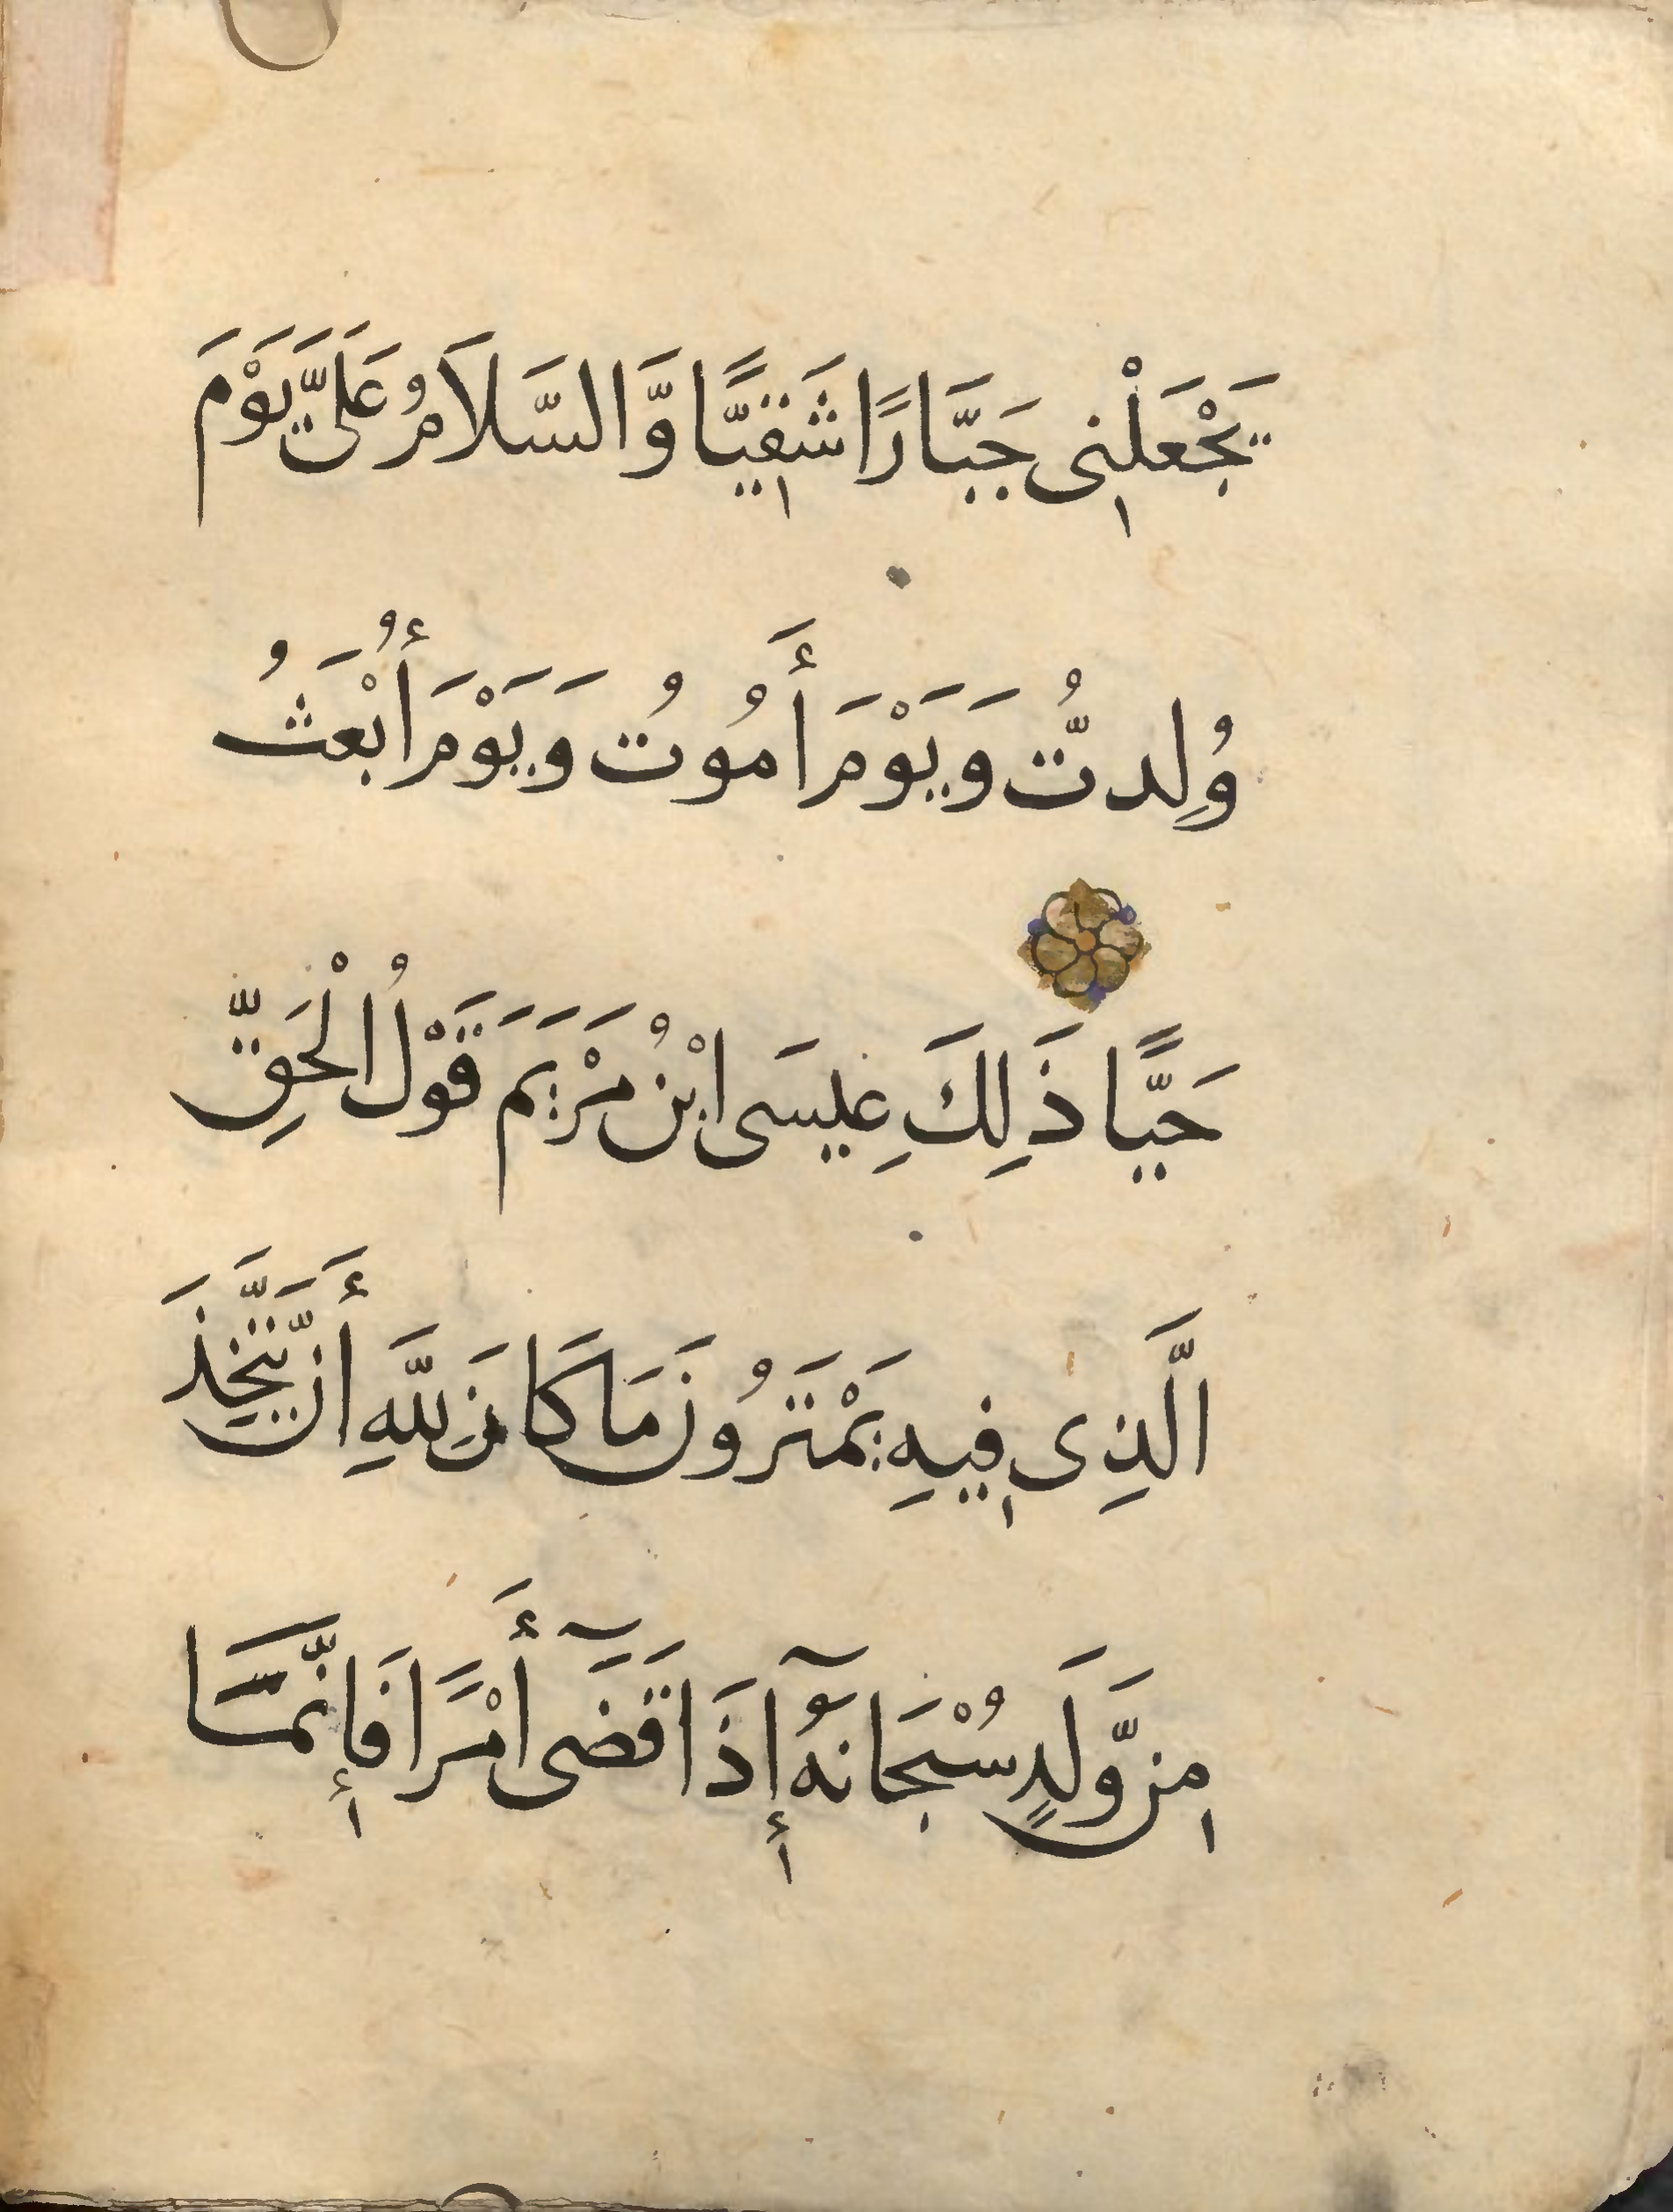 يَجْعَلْنِى جَبَّارًا شَقِيًّا وَّالسَّلَامُ عَلَىَّ يَوْمَ
وُلِدتُّ وَيَوْمَ أَمُوتُ وَيَوْمَ أُبْعَثُ
حَيًّا ذَلِكَ عِيسَى ابْنُ مَرْيَمَ قَوْلُ الْحَقِّ
الَّذِى فِيهِ يَمْتَرُونَ مَا كَانَ لِلَّهِ أَن يَّتَّخِذَ
مِن وَّلَدٍ سُبْحَانَهُ إِذَا قَضَى أَمْرًا فَإِنَّمَا